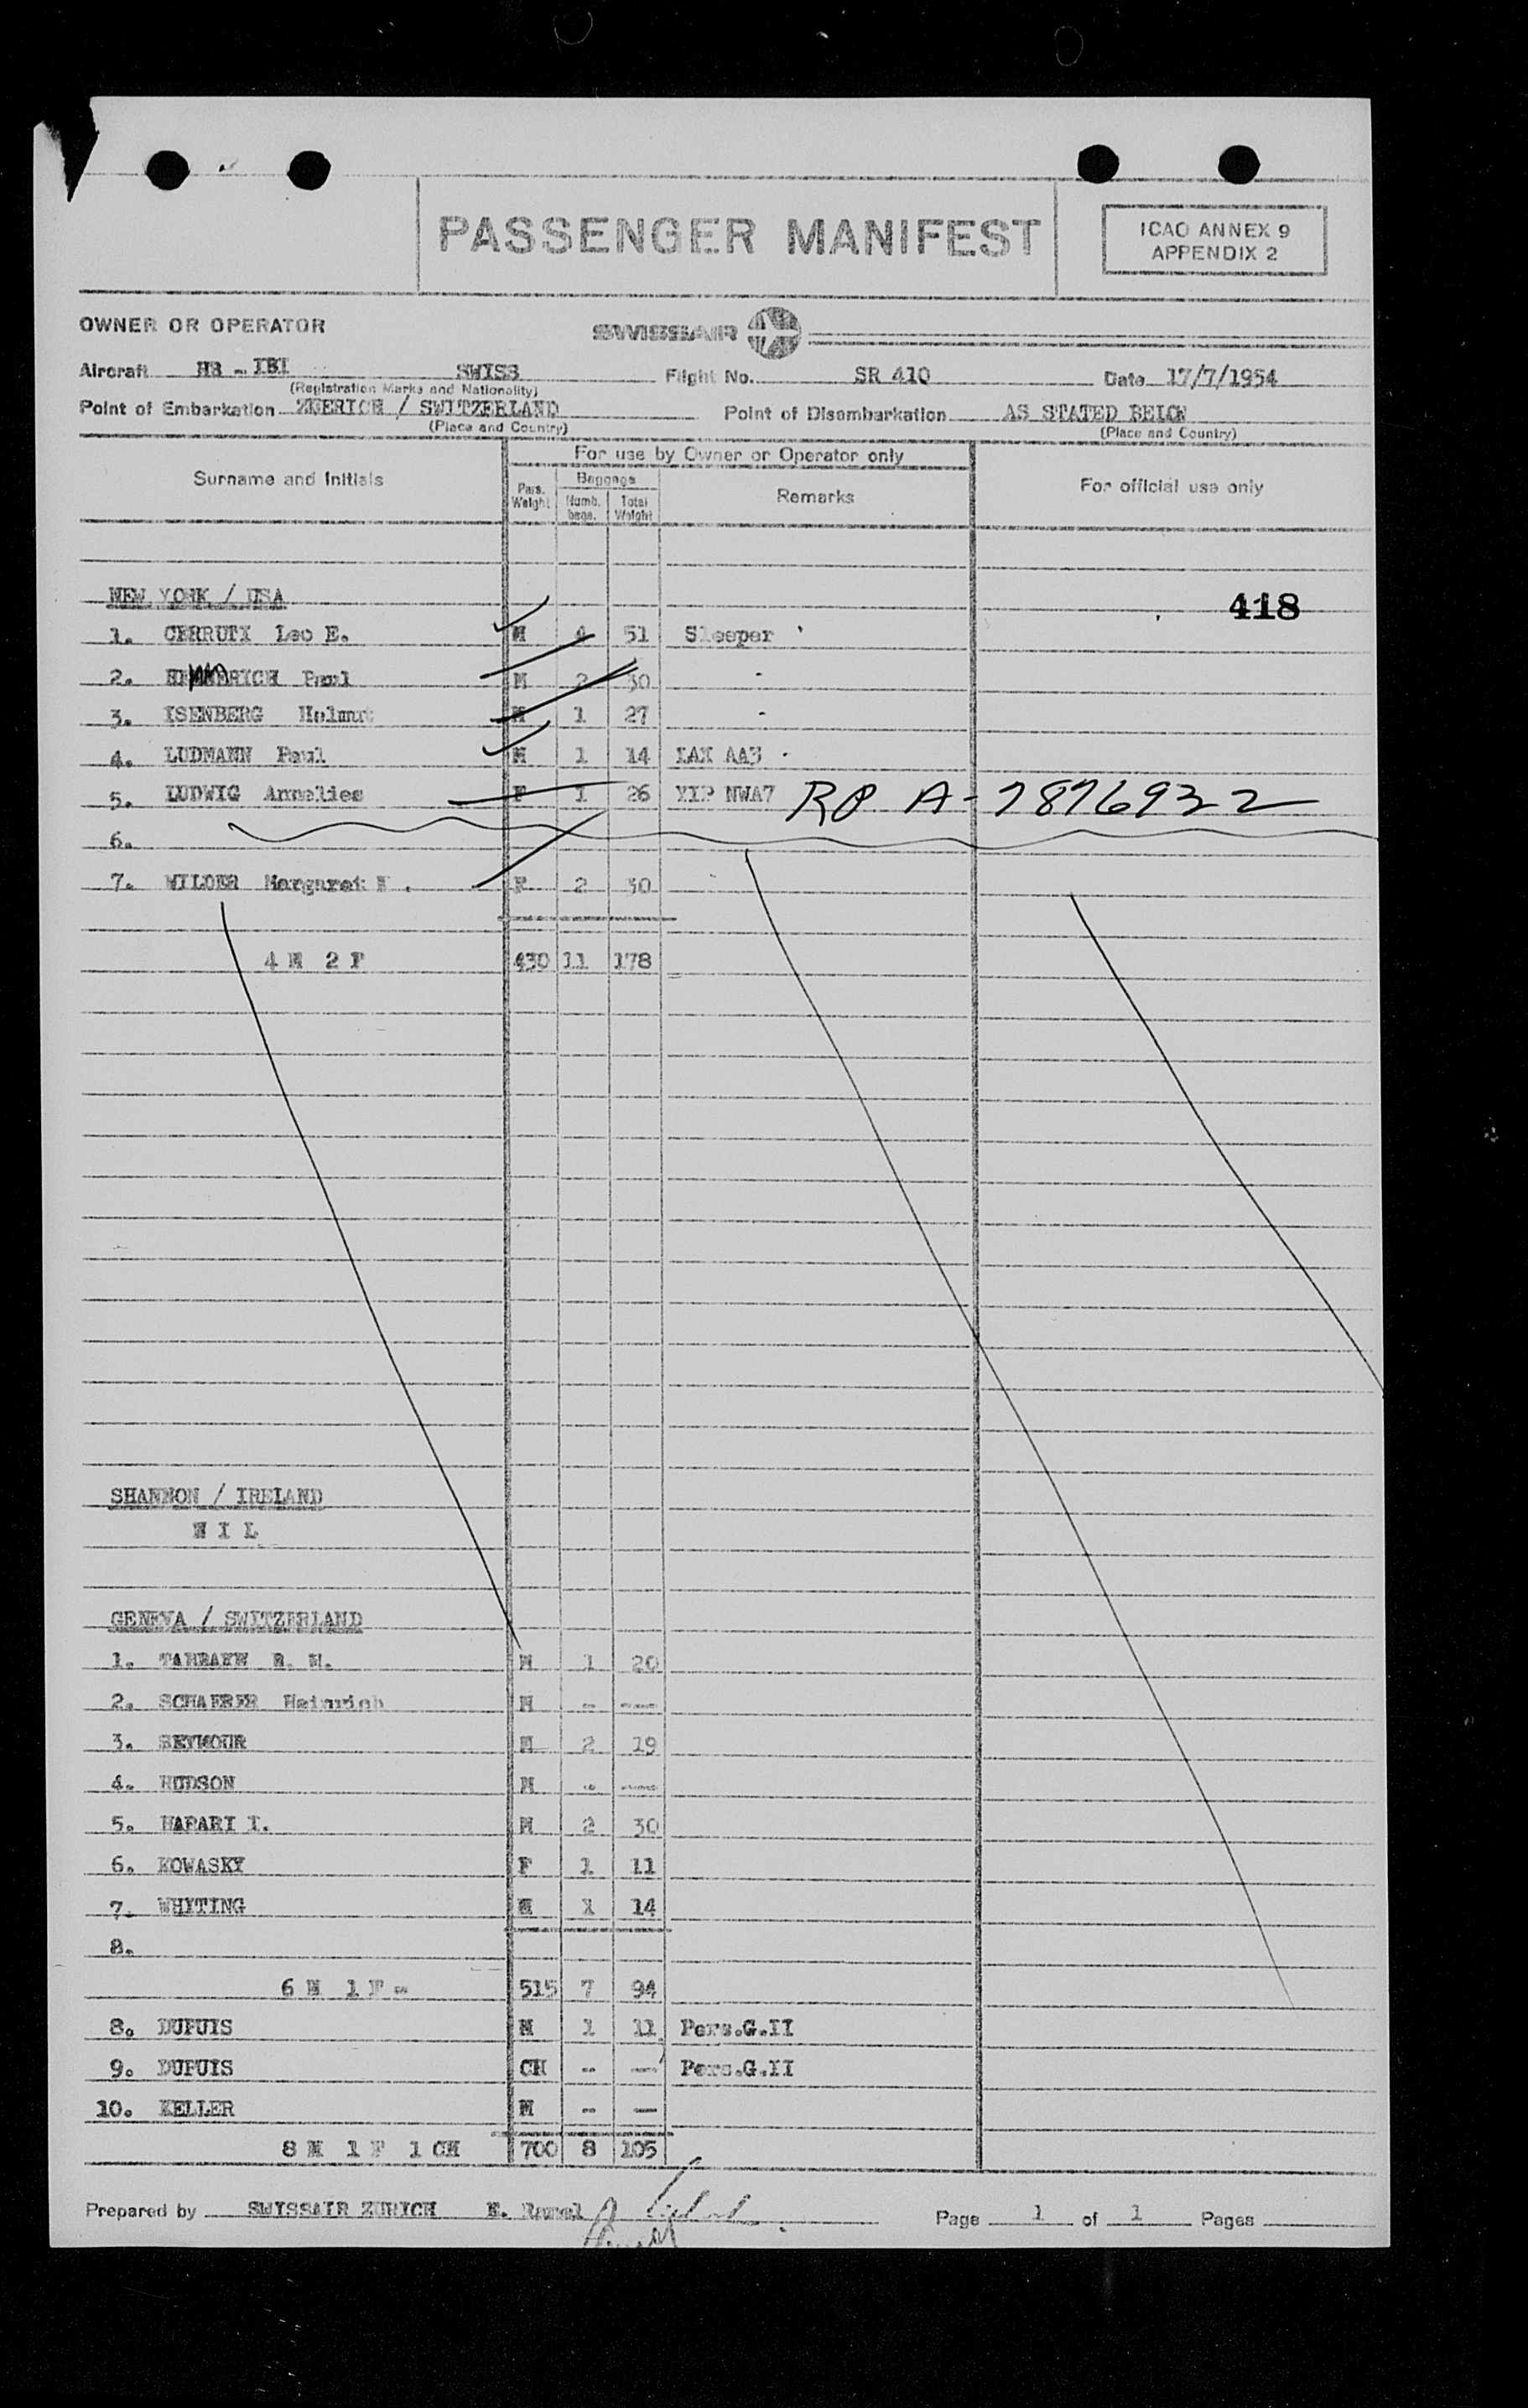 PASSENGER MANIFEST
ICAO ANNEX 9
APPENDIX 2
OWNER OR OPERATOR
SWISSAIR
Aircraft HB - IBI SWISS Flight No. SR 410 Date 17/7/1954
(Registration Marks and Nationality)
Point of Embarkation ZUERICH / SWITZERLAND Point of Disembarkation AS STATED BELOW
(Place and Country) (Place and Country)
For use by Owner or Operator only
Surname and Initials Pass. Weight Baggage Numb. bags. Total Weight Remarks For official use only
NEW YORK / USA 418
1. CERRUTI Leo E. M 4 51 Sleeper
2. HEMMERICH Paul M 2 30 -
3. ISENBERG Helmut M 1 27 -
4. LUDMANN Paul M 1 14 LAX AA3
5. LUDWIG Annelies F 1 26 YIP NWA7 RP A-7876932
6.
7. WILDER Margaret F 2 30
4 M 2 F 430 11 178
SHANNON / IRELAND
N I L
GENEVA / SWITZERLAND
1. M 1 20
2. SCHAERER Heinrich M - ---
3. SEYMOUR M 2 19
4. HUDSON M - ---
5. HARARI I. M 2 30
6. KOWASKY F 1 11
7. WHITING M 1 14
8.
6 M 1 F - 515 7 94
8. DUPUIS M 1 11 Pers.G.II
9. DUPUIS CH -- -- Pers.G.II
10. KELLER M -- --
8 M 1 F 1 CH 700 8 105
Prepared by SWISSAIR ZURICH E.
Page 1 of 1 Pages